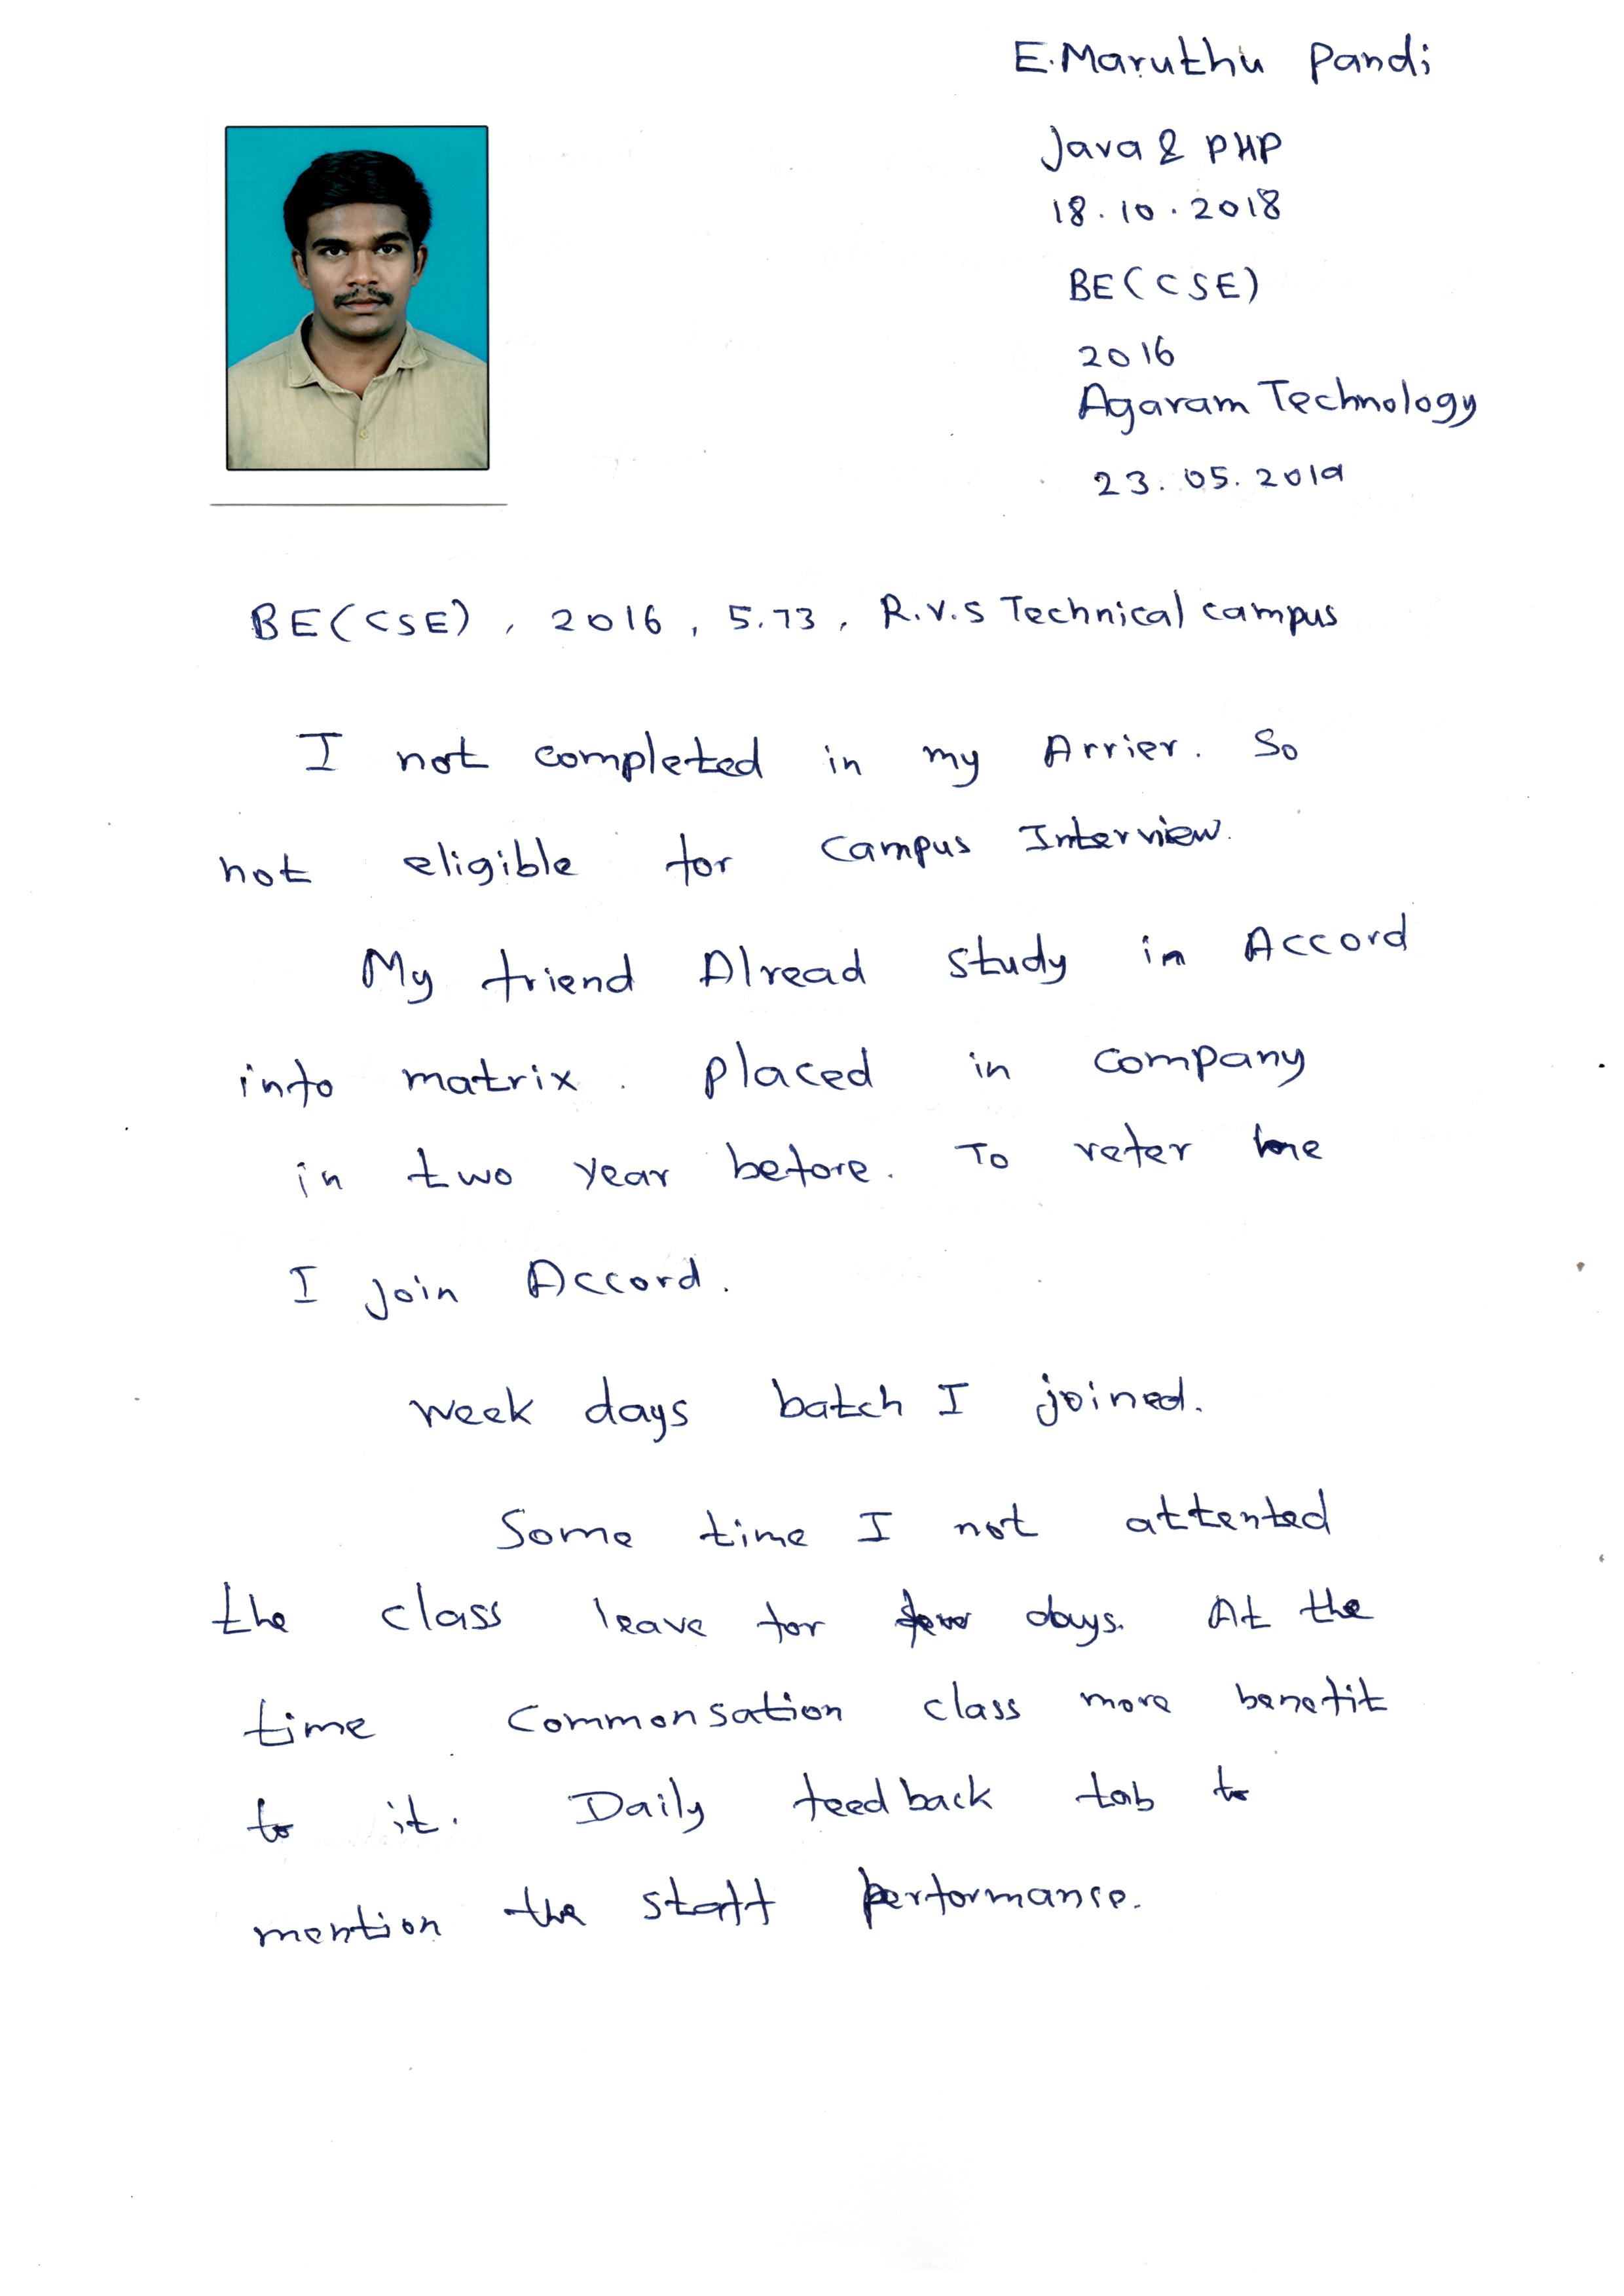 E.Maruthu Pandi
Java & PHP
18.10.2018
BE(CSE)
2016
Agaram Technology
23.05.2019
BE(CSE), 2016, 5.73, R.V.S Technical campus
I not completed in my Arrier. So
not eligible for campus Interview.
My friend Alread study in Accord
info matrix. placed in company
in two year before. To refer me
I join Accord.
week days batch I joined.
Some time I not attented
the class leave for few days. At the
time Commonsation class more benefit
to it. Daily feedback tab to
mention the staff performance.